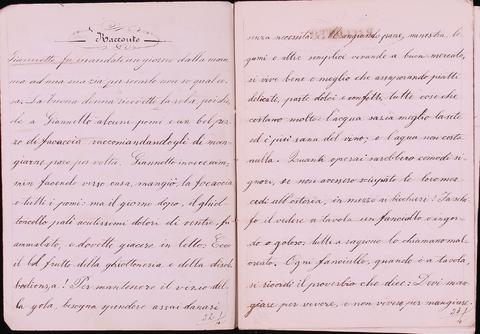 Racconto
Giannetto fu mandato un giorno dalla mam-
ma ad una sua zia per recarle non so qual co-
sa. La buona donna ricevette la roba, poi die-
de a Giannetto alcuni pomi e un bel pez-
zo di focaccia raccomandandogli di man-
giarne poco per volta. Giannetto invece cam-
min facendo verso casa, mangiò la focaccia
e tutti i pomi: ma il giorno dopo, il ghiot-
toncello patì acutissimi dolori di ventre, fu
ammalato, e dovette giacere in letto. Ecco
il bel frutto della ghiottoneria e della disob-
bedienza! Per mantenere il vizio del-
la gola, bisogna spendere assai danari
senza necessità. Mangiando pane, minestra, le-
gumi e altre semplici vivande a buon mercato,
si vive bene e meglio che assaporando piatti
delicati, paste dolci e confetti, tutte cose che
costano molto: l'acqua sazia meglio la sete
ed è più sana del vino; e l'acqua non costa
nulla. Quanti operai sarebbero comodi si-
gnori, se non avessero sciupato le loro mer-
cedi all'osteria, in mezzo ai bicchieri! Fa schi-
fo il vedere a tavola un fanciullo e ingor-
do o goloso: tutti a ragione lo chiamano mal
creato. Ogni fanciullo, quando è a tavola,
si ricordi il proverbio che dice: Devi man-
giare per vivere, e non vivere per mangiare.